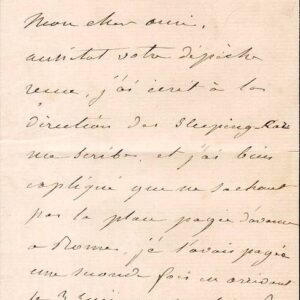 Mon cher ami,
aussitot votre dépêche
reçue, j'ai écrit à la
direction des Sleeping-Cars
une scribe, et j'ai bien
expliqué que ne sachant
pas la place payée d'avance
a Rome, je l'avais payée
une seconde fois en arrivant
le 3 Juin